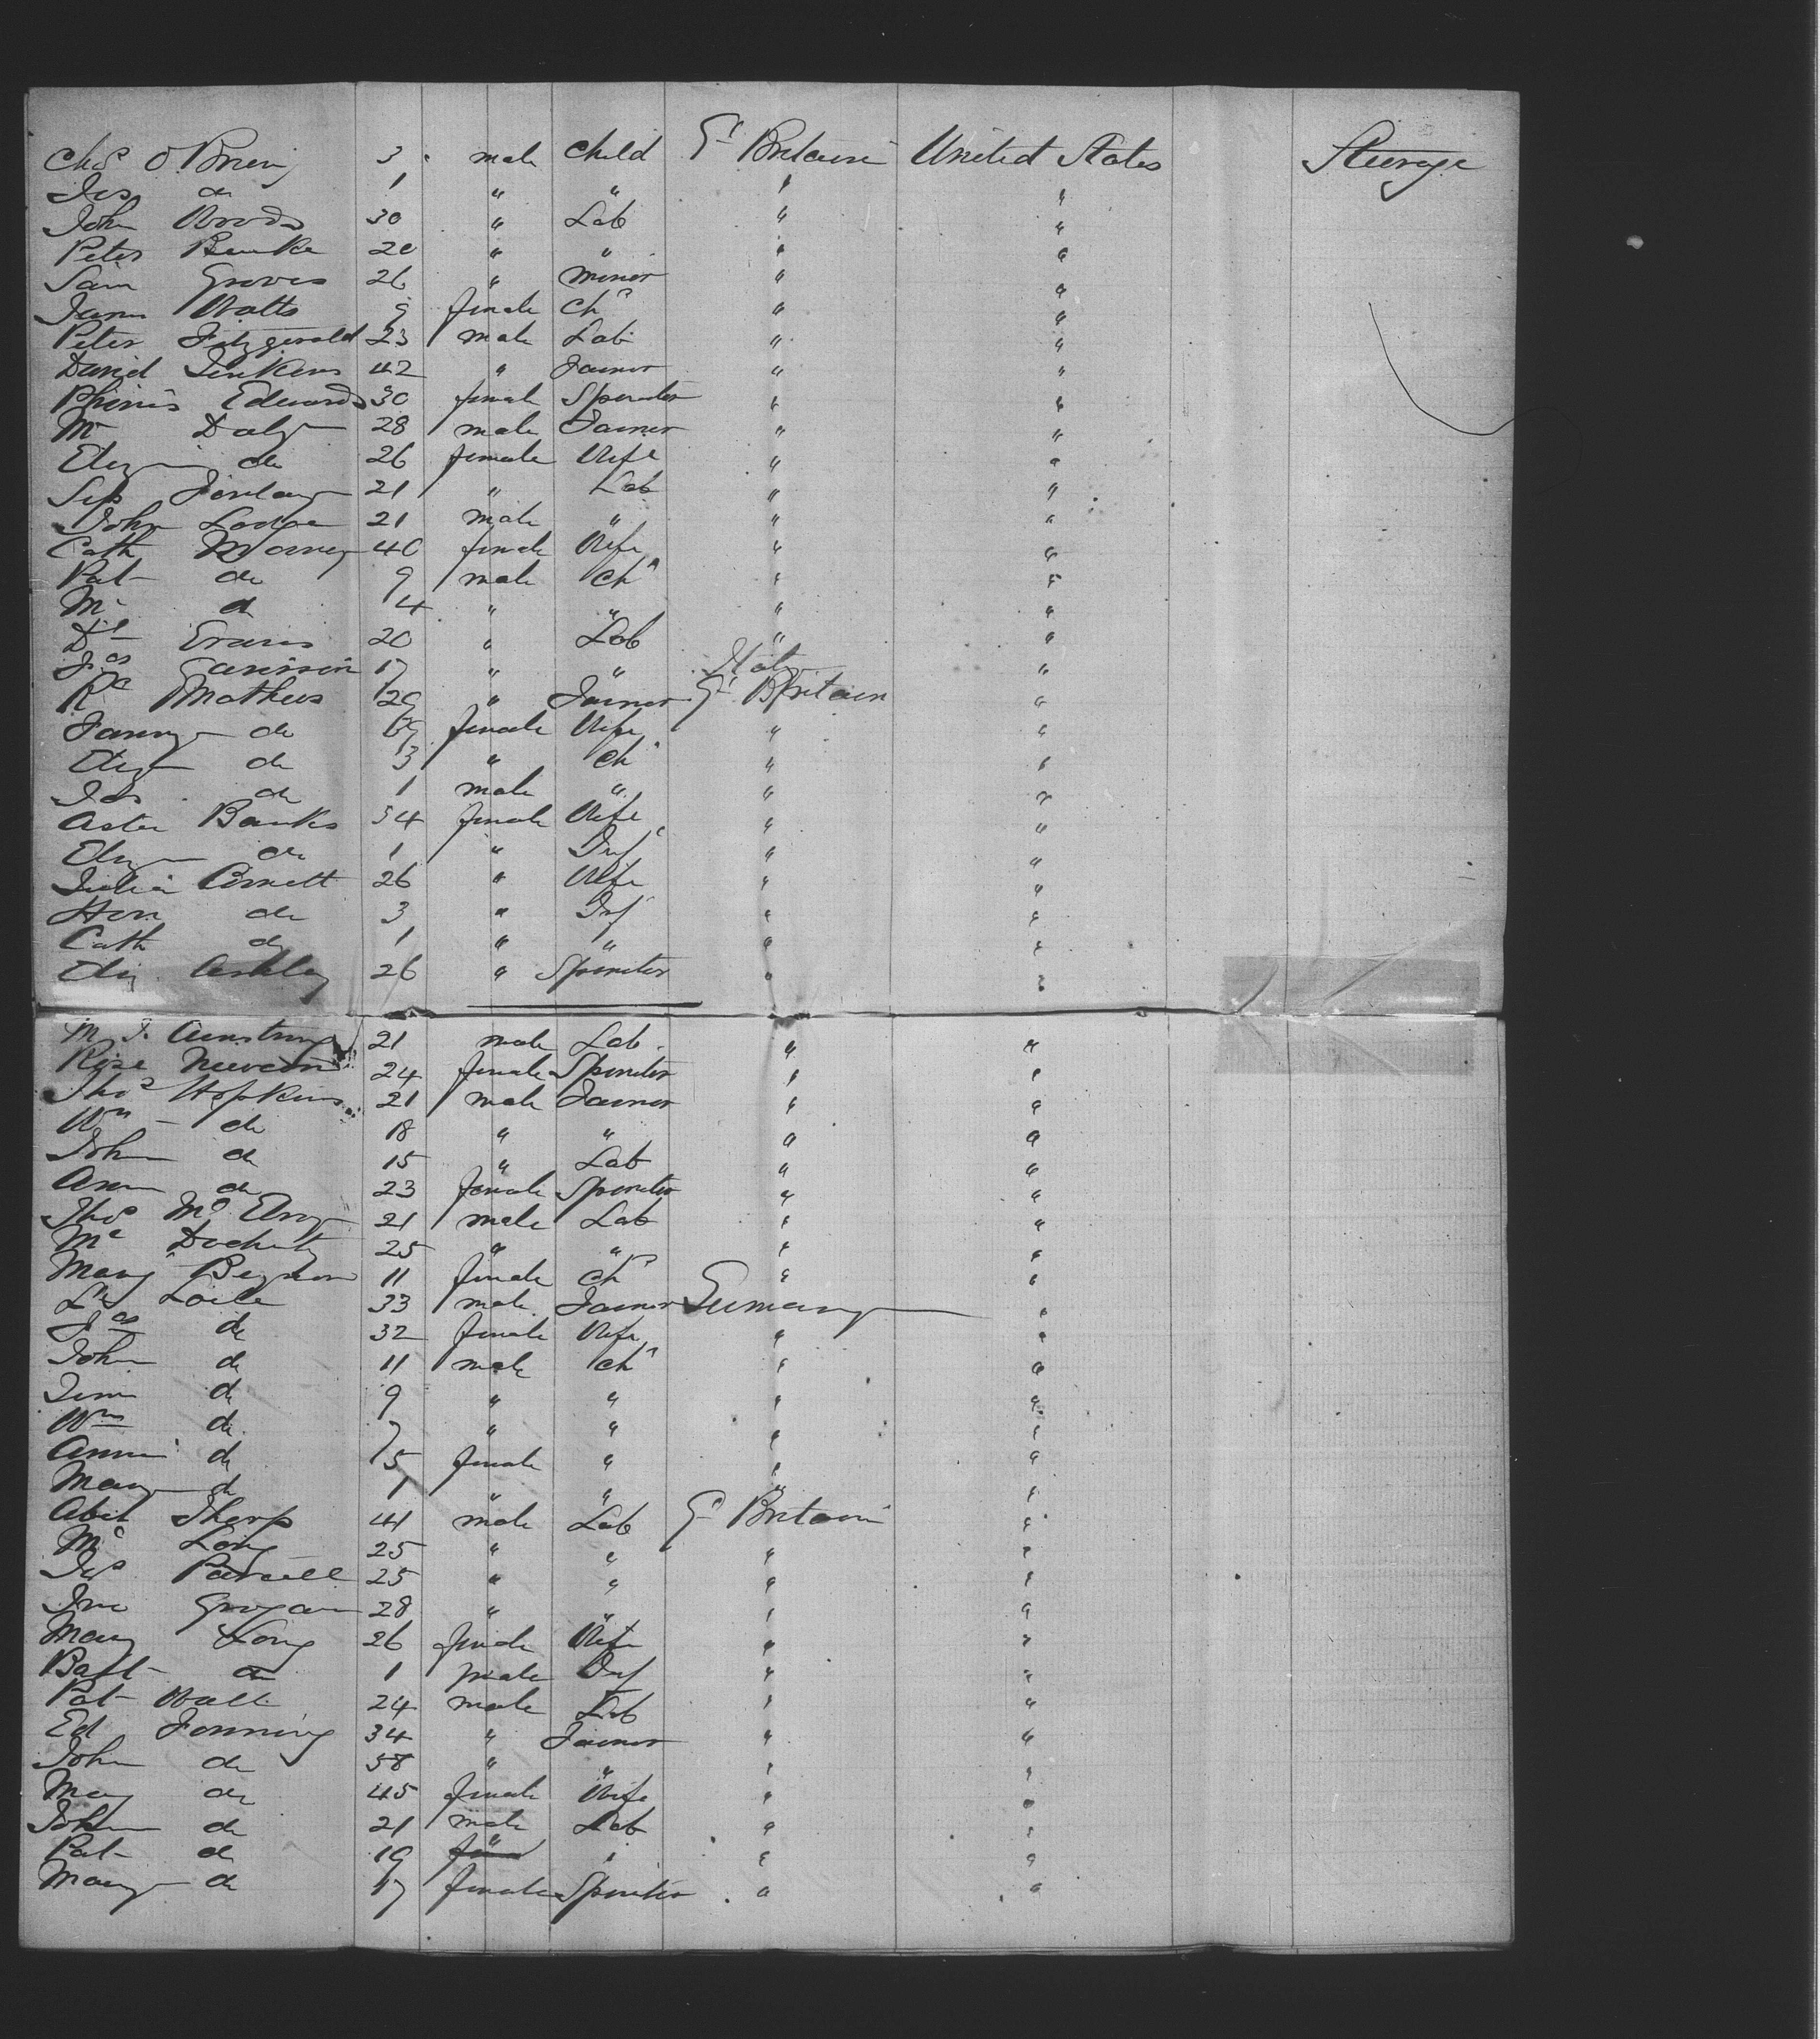 Chas O'Brien 3 male Child Gt Britain United States Steerage
Jas do 1 " " " "
John Woods 30 " Lab " "
Peter Burke 20 " " " "
Sam Groves 26 " minor " "
Watts 9 female Chd " "
Peter Fitzgerald 23 male Lab " "
David Jenkins 42 " Farmer " "
Edwards 30 female Spinster " "
Mr Daly 28 male Farmer " "
Eliza do 26 female Wife " "
21 " Lab " "
John Lodge 21 male " " "
Cath 40 female Wife " "
Pat do 9 male Chd " "
M do 4 " " " "
Dd Evans 20 " Lab " "
Jas Garrison 17 " " Italy "
Rd Mathews 29 " Farmer Gt Britain "
Fanny do 29 female Wife " "
Eliza do 3 " Ch " "
Jas do 1 male " " "
Banks 34 female Wife " "
Eliza do 1 " Inf " "
Julia 26 " Wife " "
Hon do 3 " Inf " "
Cath do 1 " " " "
Eliz 26 " Spinster " "
M J. Armstrong 21 male Lab " "
Rose 24 female Spinster " "
Thos Hopkins 21 male Farmer " "
Wm do 18 " " " "
John do 15 " Lab " "
Ann do 23 female Spinster " "
Thos Mc 21 male Lab " "
Docherty 25 " " " "
Mary 11 female Ch " "
33 male Farmer Germany "
do 32 female Wife " "
John do 11 male Ch " "
do 9 " " " "
Wm do 7 " " " "
Annie do 5 female " " "
Mary do 1 " " " "
Abel Tharp 41 male Lab Gt Britain "
Mc Long 25 " " " "
Jas Purcell 25 " " " "
Jno Grogan 28 " " " "
Mary Long 26 female Wife " "
Bart do 1 male Inf " "
Pat Wall 24 male Lab " "
Ed Fanning 34 " Farmer " "
John do 58 " " " "
Mary do 45 female Wife " "
John do 21 male Lab " "
Pat do 19 " " "
Mary do 17 female Spinster " "